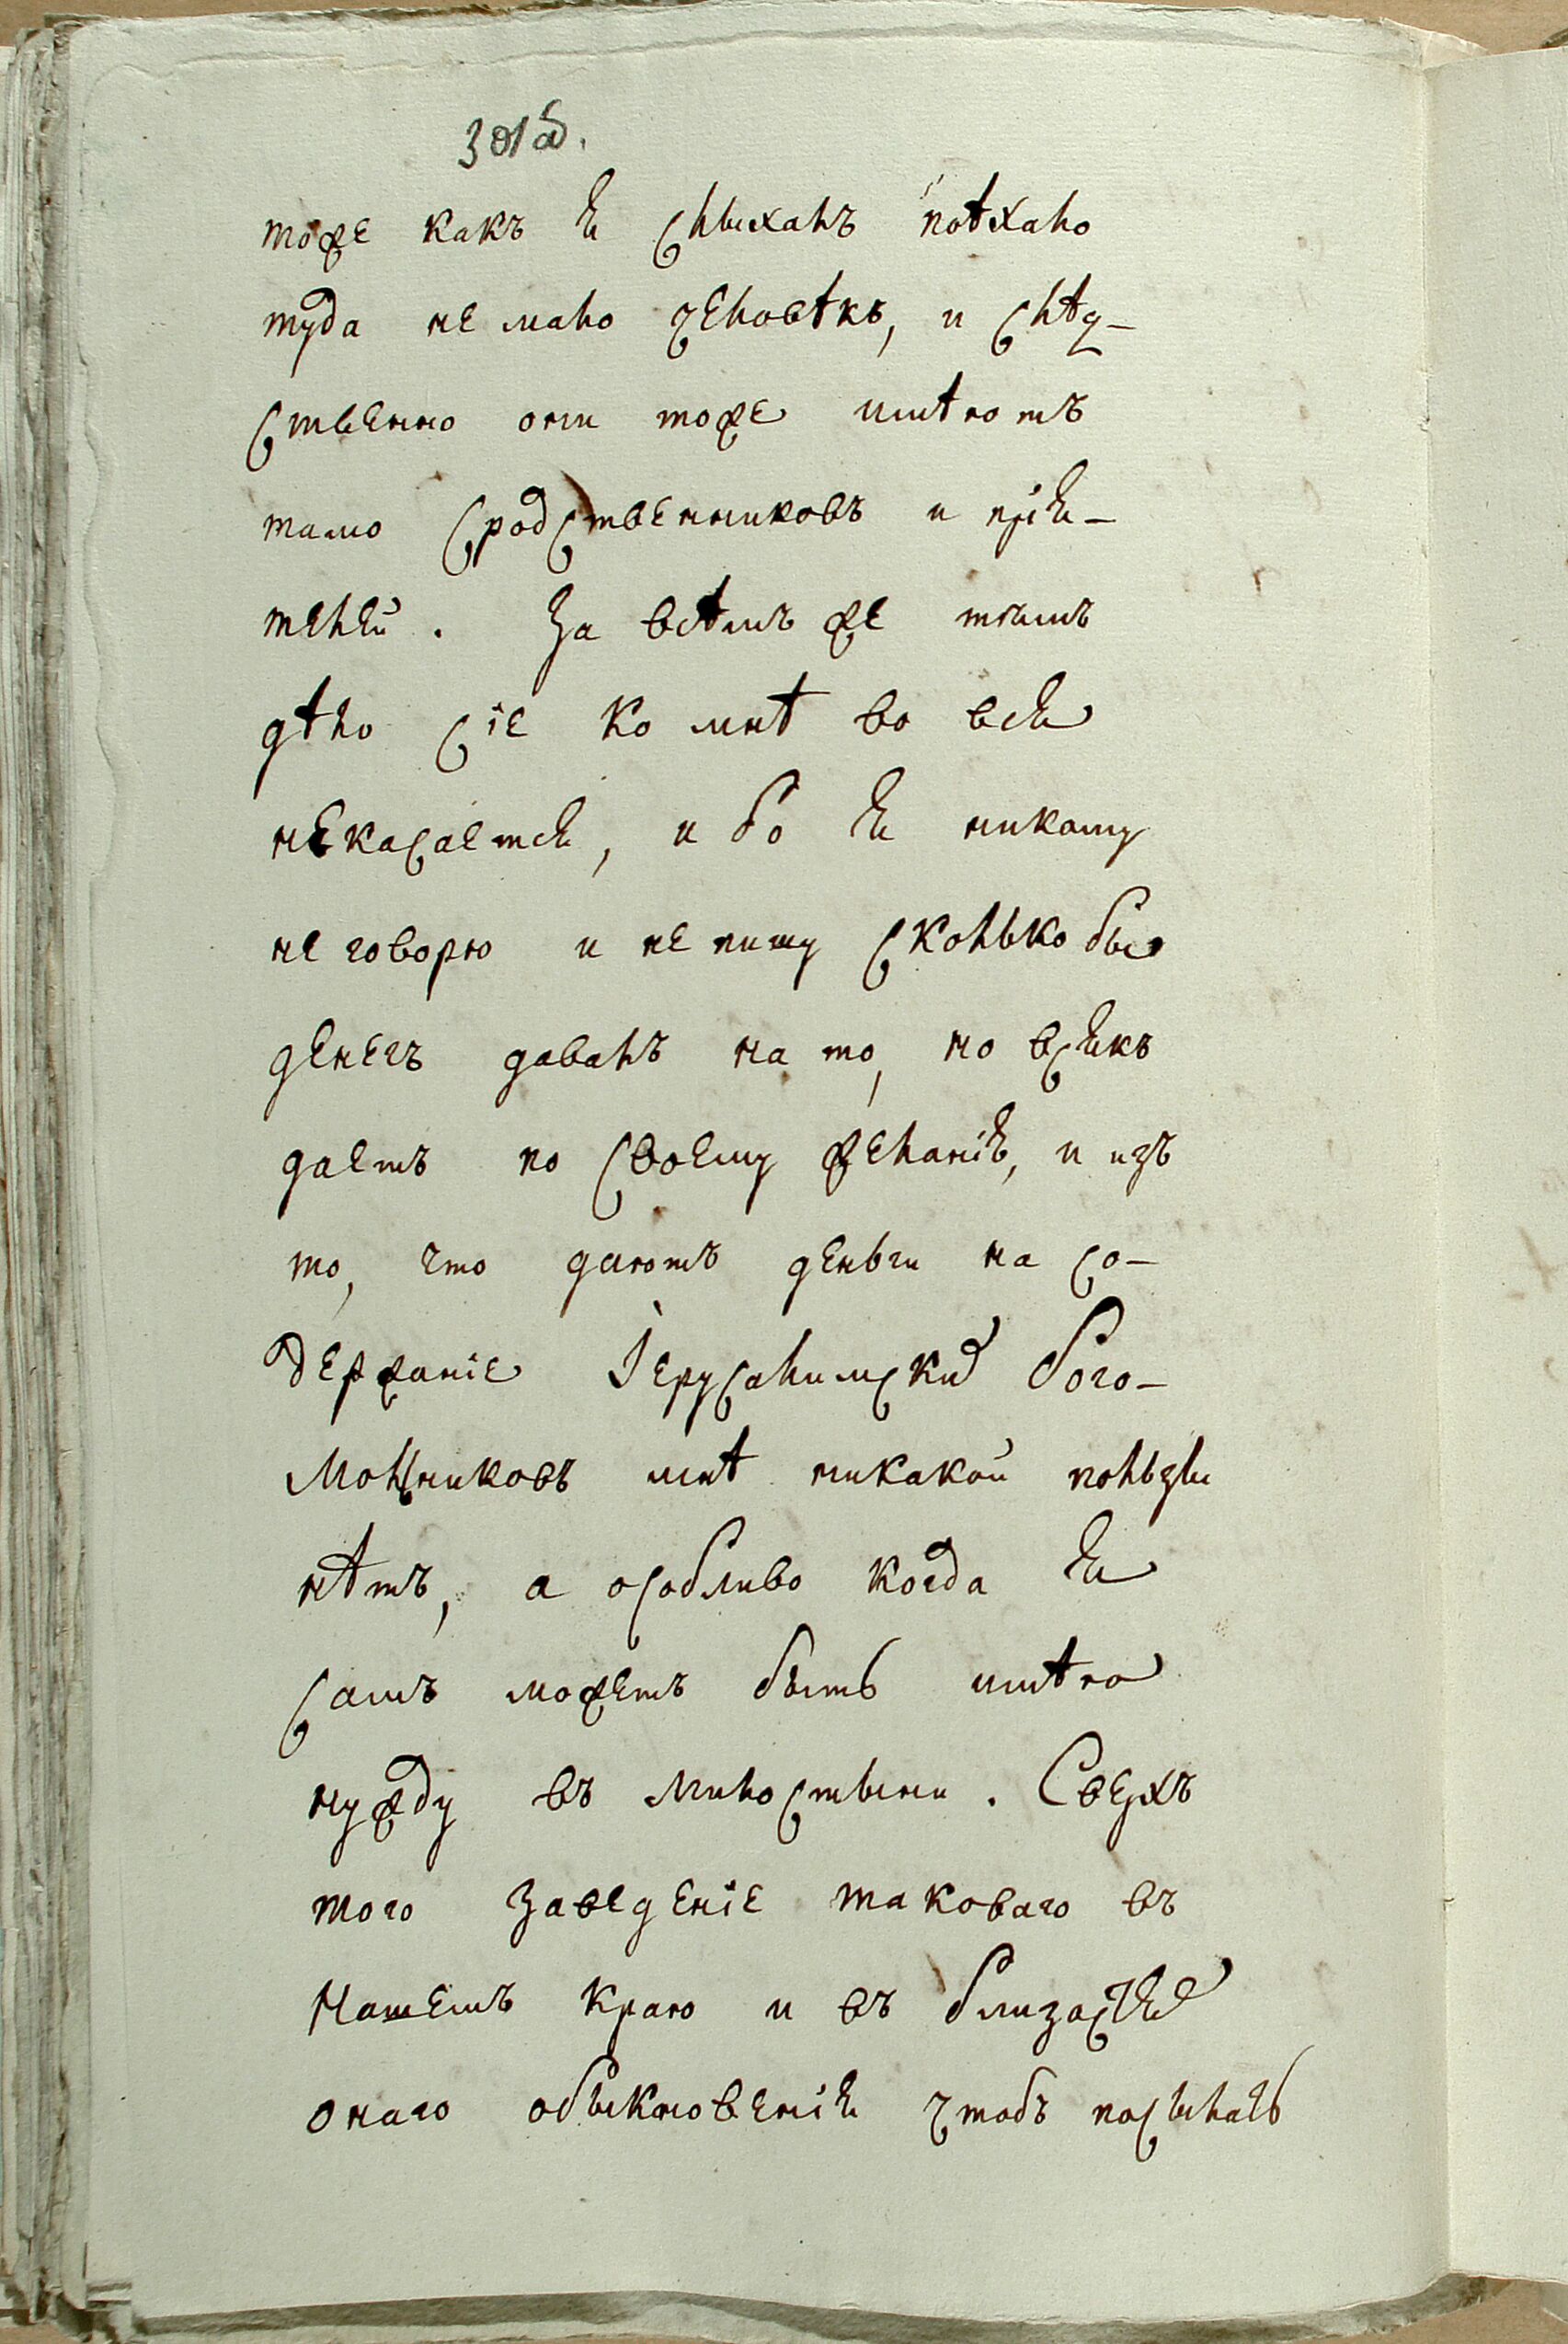 301 об.
тоже какъ я слыхалъ поѣхало
туда не мало человѣкъ, и слѣд-
ственно они тоже имѣютъ
тамо сродственниковъ и прія-
телей. За всѣмъ же тымъ
дѣло сіе ко мнѣ во вся
некасается, и бо я никому
не говорю и не пишу сколько бы
денегъ давалъ на то, но всякъ
даетъ по своему желанію, и изъ
то, что даютъ деньги на со-
держаніе Іерусалимскихъ бого-
молцниковъ мнѣ никакой пользы
нѣтъ, а особливо когда я
самъ можетъ быть имѣю
нужду въ милостыни. Сверхъ
того заведеніе таковаго въ
нашемъ краю и въ близости
онаго обыкновенія чтобъ посылать